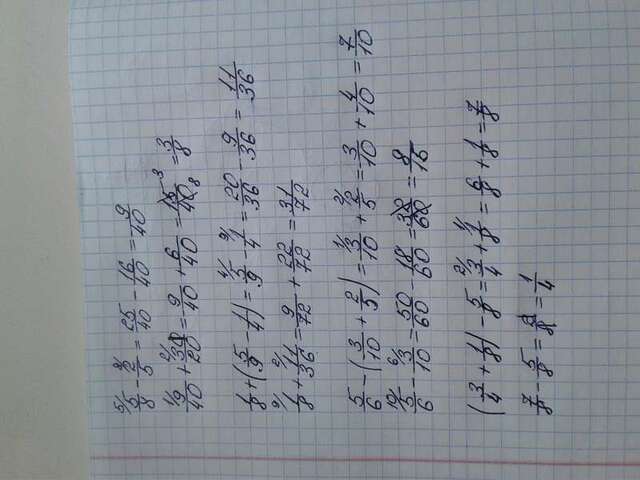 ⁵/5/8 - ⁸/2/5 = 25/40 - 16/40 = 9/40
¹/9/40 + ²/3/20 = 9/40 + 6/40 = 15/40 ³ ₈ = 3/8
1/8 + (5/9 - 1/4) = ⁴/5/9 - ⁹/1/4 = 20/36 - 9/36 = 11/36
⁹/1/8 + ²/11/36 = 9/72 + 22/72 = 31/72
5/6 - (3/10 + 2/5) = ¹/3/10 + ²/2/5 = 3/10 + 4/10 = 7/10
¹⁰/5/6 - ⁶/3/10 = 50/60 - 18/60 = 32/60 = 8/15
(3/4 + 1/8) - 5/8 = ²/3/4 + ¹/1/8 = 6/8 + 1/8 = 7/8
7/8 - 5/8 = 2/8 = 1/4